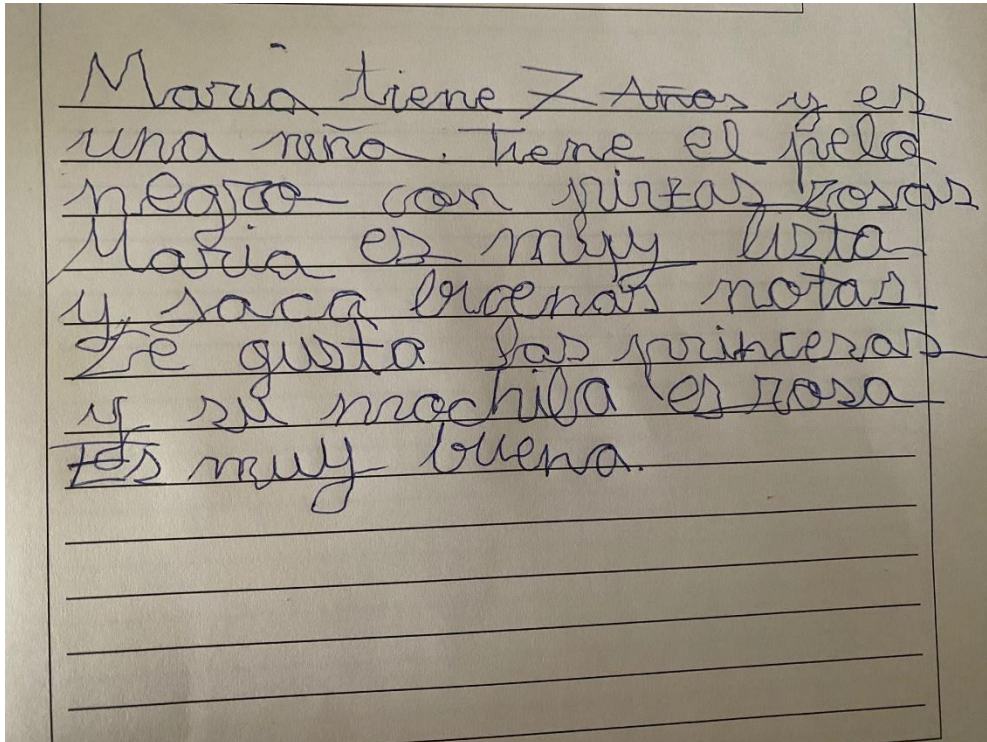 Maria tiene 7 Años y es
una niña. Tiene el pelo
negro con pintas rosas
Maria es muy lista
y saca buenas notas
Le gusta las princesas
y su mochila es rosa
Es muy buena.